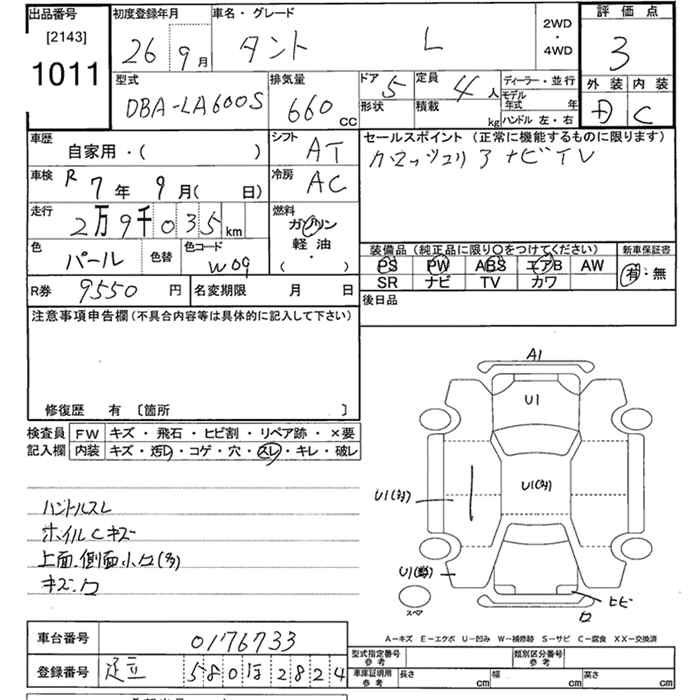 出品番号
[2143]
1011
初度登録年月
26 9月
車名・グレード
タント L
2WD
・
4WD
評価点
3
外装 内装
D C
型式
DBA-LA600S
排気量
660 CC
ドア 5
定員 4人
形状
積載 kg
ディーラー・並行
モデル年式 年
ハンドル 左・右
車歴
自家用・( )
シフト
AT
車検 R7年9月( 日)
冷房
AC
走行 2万9千035km
燃料
ガソリン
軽油
・
( )
色 パール
色替
色コード W09
R券 9550円
名変期限 月 日
セールスポイント (正常に機能するものに限ります)
ナビTV
装備品 (純正品に限り○をつけてください)
PS PW ABS エアB AW
SR ナビ TV カワ
新車保証書
有・無
後日品
注意事項申告欄(不具合内容等は具体的に記入して下さい)
修復歴 有 〔箇所 〕
検査員記入欄
FW キズ・飛石・ヒビ割・リペア跡・×要
内装 キズ・汚レ・コゲ・穴・スレ・キレ・破レ
ハンドルスレ
ホイルCキズ
上面、側面小凹(多)
キズ、凹
A1
U1
U1(対)
U1(対)
スペア
ヒビ
凹
A−キズ E−エクボ U−凹み W−補修跡 S−サビ C−腐食 XX−交換済
車台番号 0176733
登録番号 足立 580ほ2824
型式指定番号 参考
類別区分番号 参考
車庫証明用 参考
長さ cm
幅 cm
高さ cm